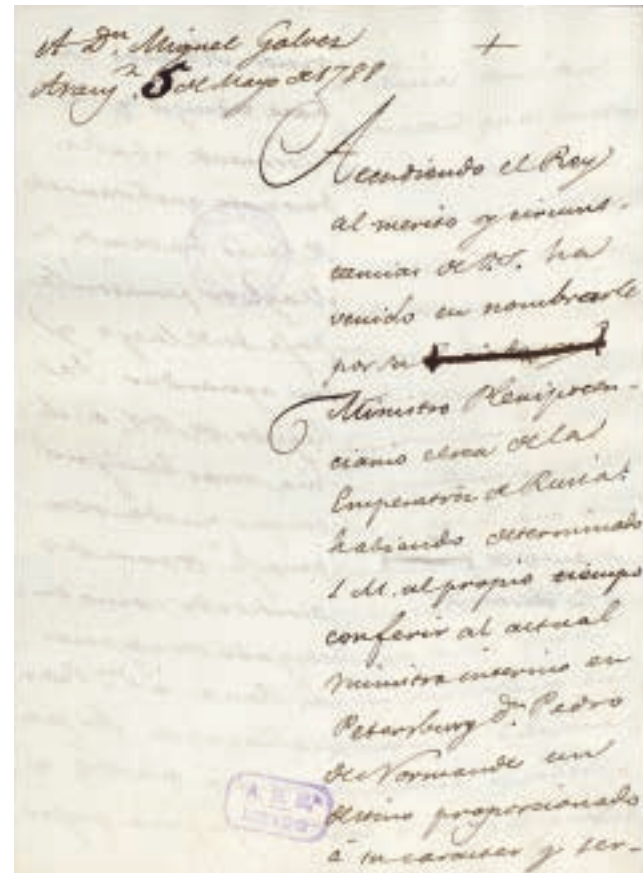 A Dn. Miguel Galvez
Aranjz. 5 de Mayo de 1788
+
Atendiendo el Rey
al merito y circuns-
tancias de V.S. ha
venido en nombrarle
por su
Ministro Plenipoten-
ciario cerca de la
Emperatriz de Rusia:
habiendo determinado
S.M. al propio tiempo
conferir al actual
ministro interino en
Petersburg Dn. Pedro
de Normande un
destino proporcionado
à su caracter y ser-
A. H. N.